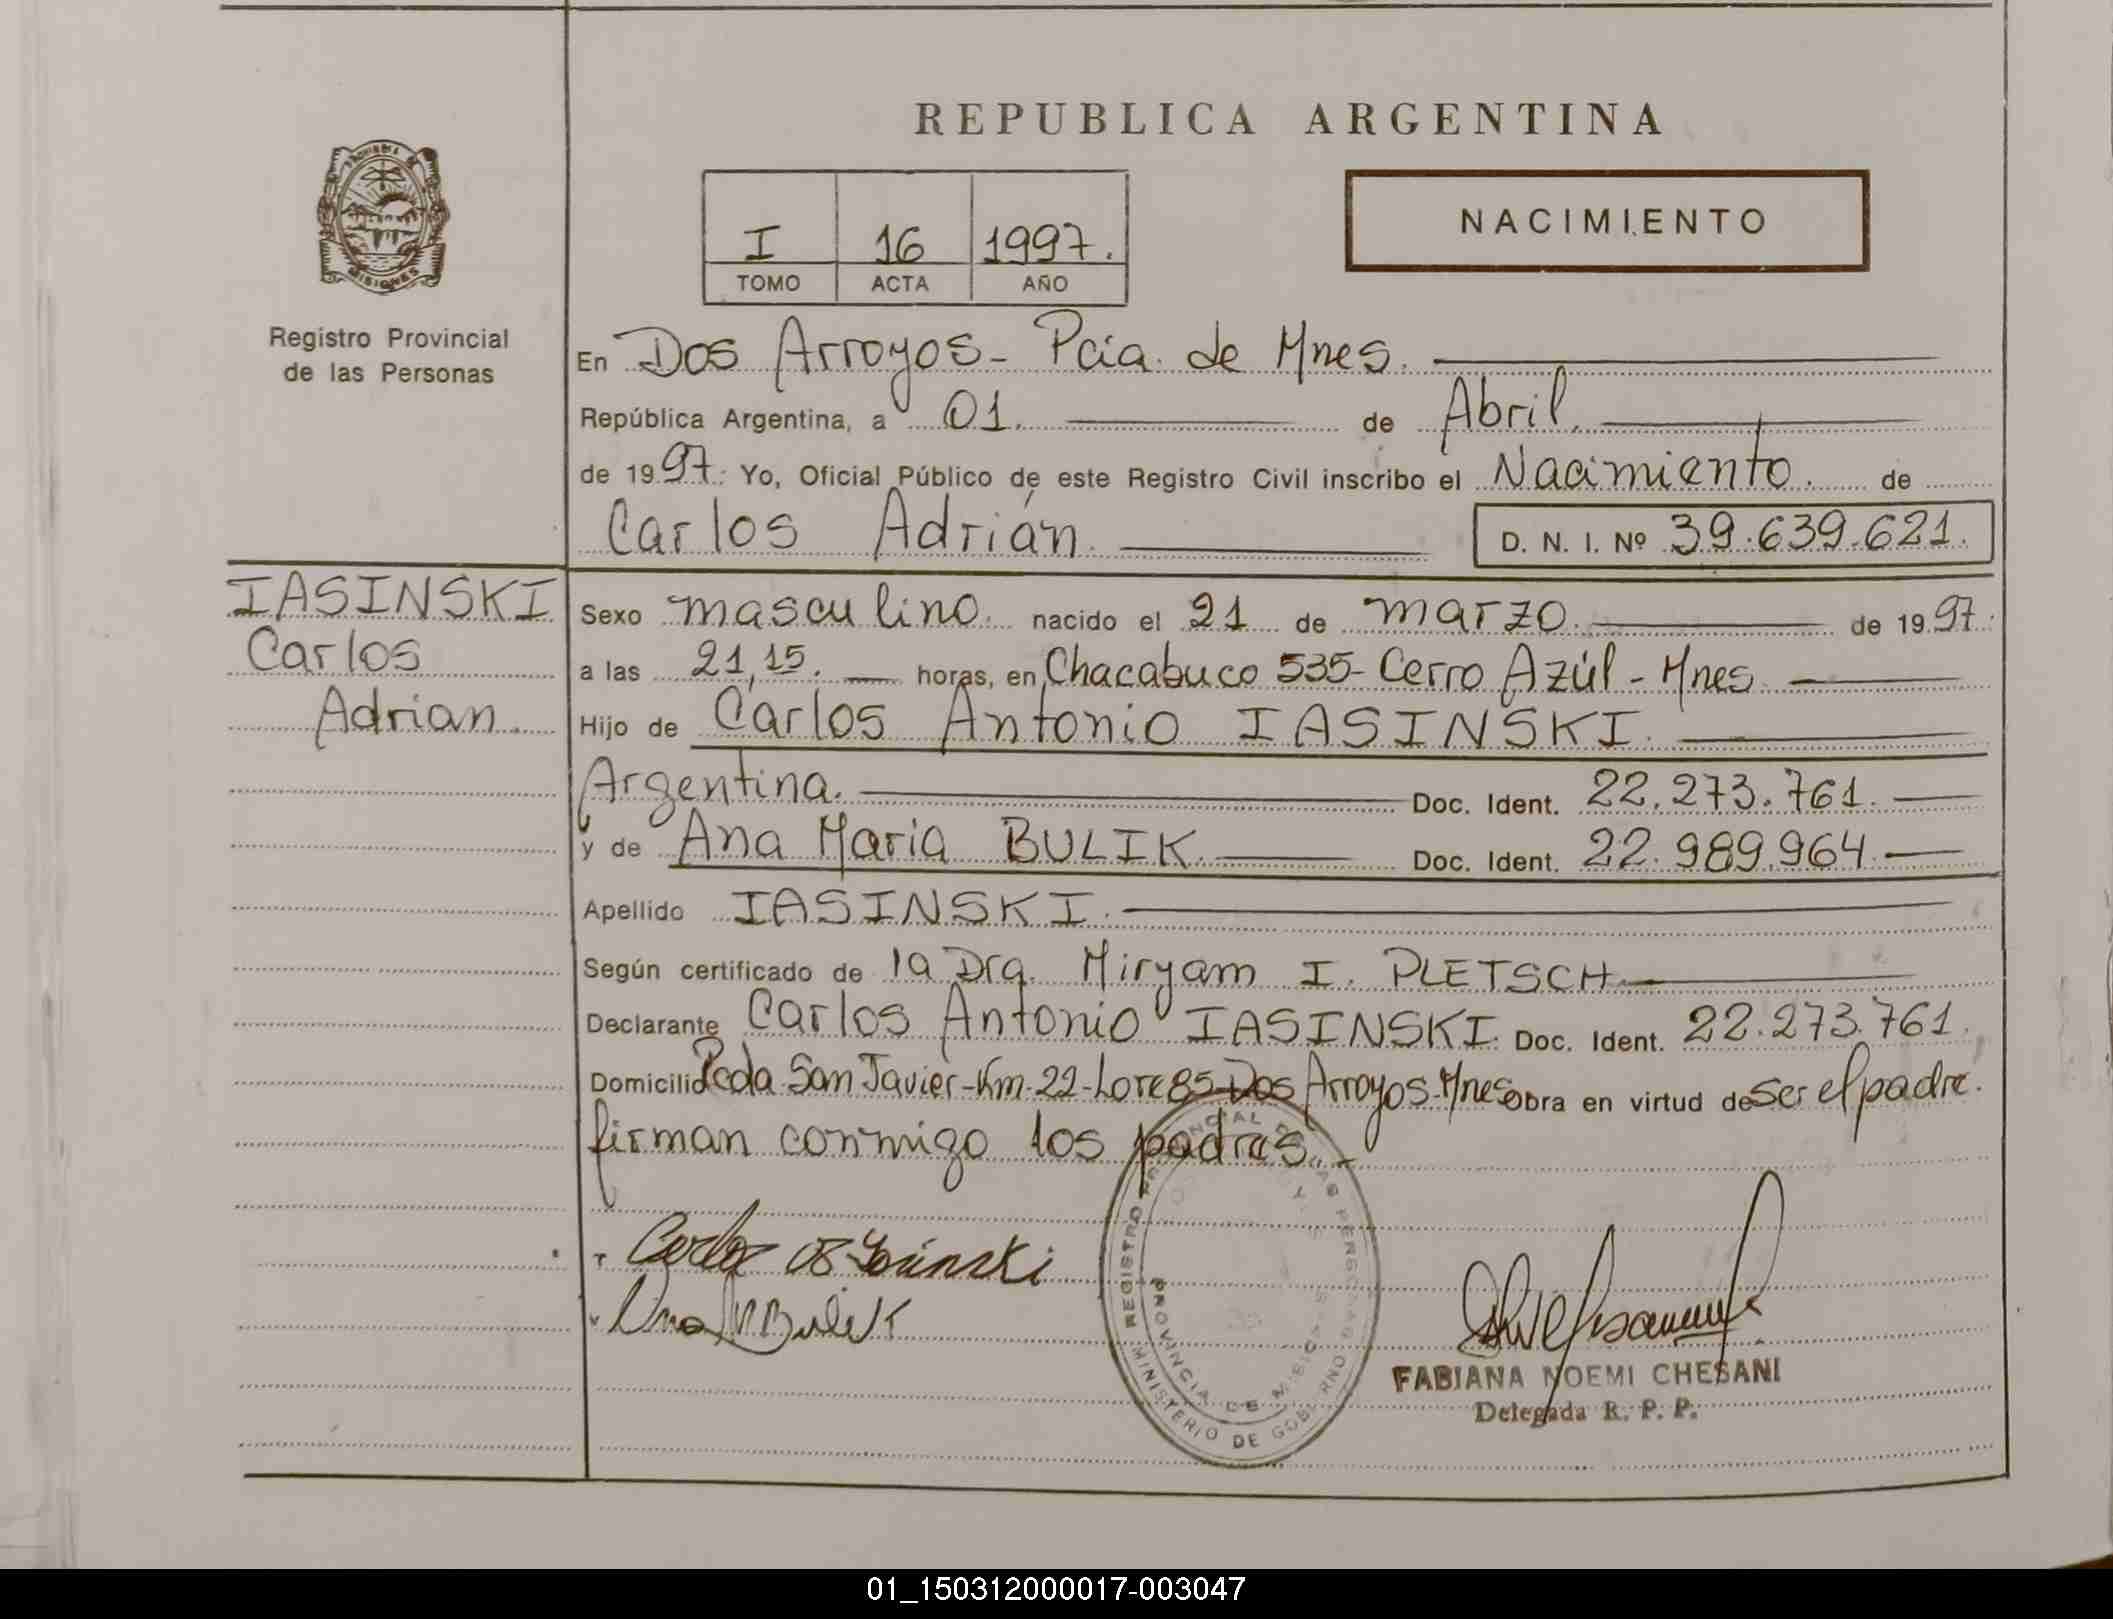 REPUBLICA ARGENTINA
PROVINCIA DE
MISIONES
Registro Provincial
de las Personas
I 16 1997.
TOMO ACTA AÑO
NACIMIENTO
En Dos Arroyos - Pcia. de Mnes.
República Argentina, a 01. de Abril.
de 1997. Yo, Oficial Público de este Registro Civil inscribo el Nacimiento. de
Carlos Adrián. D. N. I. Nº 39.639.621.
IASINSKI
Carlos
Adrian.
Sexo masculino. nacido el 21 de marzo. de 1997.
a las 21,15. horas, en Chacabuco 535- Cerro Azúl - Mnes.
Hijo de Carlos Antonio IASINSKI.
Argentina. Doc. Ident. 22.273.761.
y de Ana Maria BULIK. Doc. Ident. 22.989.964.
Apellido IASINSKI.
Según certificado de la Dra. Miryam I. PLETSCH
Declarante Carlos Antonio IASINSKI. Doc. Ident. 22.273.761.
Domicilio Pcda. San Javier-Km.22-Lote 85-Dos Arroyos-Mnes Obra en virtud de ser el padre.
firman conmigo los padres.-
REGISTRO PROVINCIAL DE LAS PERSONAS
PROVINCIA DE MISIONES
MINISTERIO DE GOBIERNO
FABIANA NOEMI CHESANI
Delegada R. P. P.
01_150312000017-003047